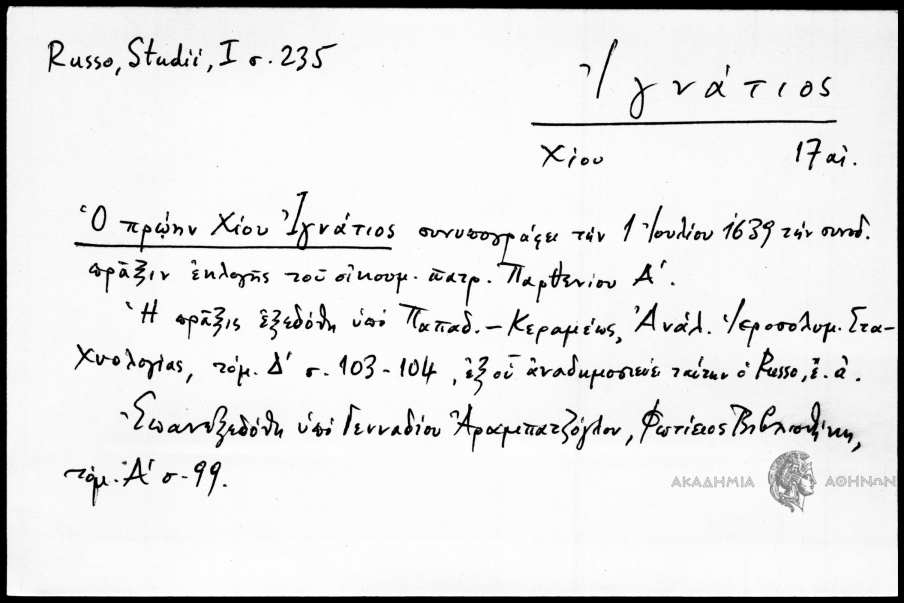 Russo, Studii, I σ. 235
Ἰγνάτιος
Χίου 17 αἰ.
Ὁ πρώην Χίου Ἰγνάτιος συνυπογράφει τὴν 1 Ἰουλίου 1639 τὴν συνοδ.
πρᾶξιν ἐκλογῆς τοῦ οἰκουμ. πατρ. Παρθενίου Α΄.
Ἡ πρᾶξις ἐξεδόθη ὑπὸ Παπαδ.-Κεραμέως, Ἀνάλ. Ἱεροσολυμ. Στα-
χυολογίας, τόμ. Δ΄ σ. 103-104, ἐξ οὗ ἀναδημοσιεύει ταύτην ὁ Russo, ἔ. ἀ.
Ἐπανεξεδόθη ὑπὸ Γενναδίου Ἀραμπατζόγλου, Φωτίειος Βιβλιοθήκη,
τόμ. Α΄ σ. 99.
ΑΚΑΔΗΜΙΑ ΑΘΗΝΩΝ